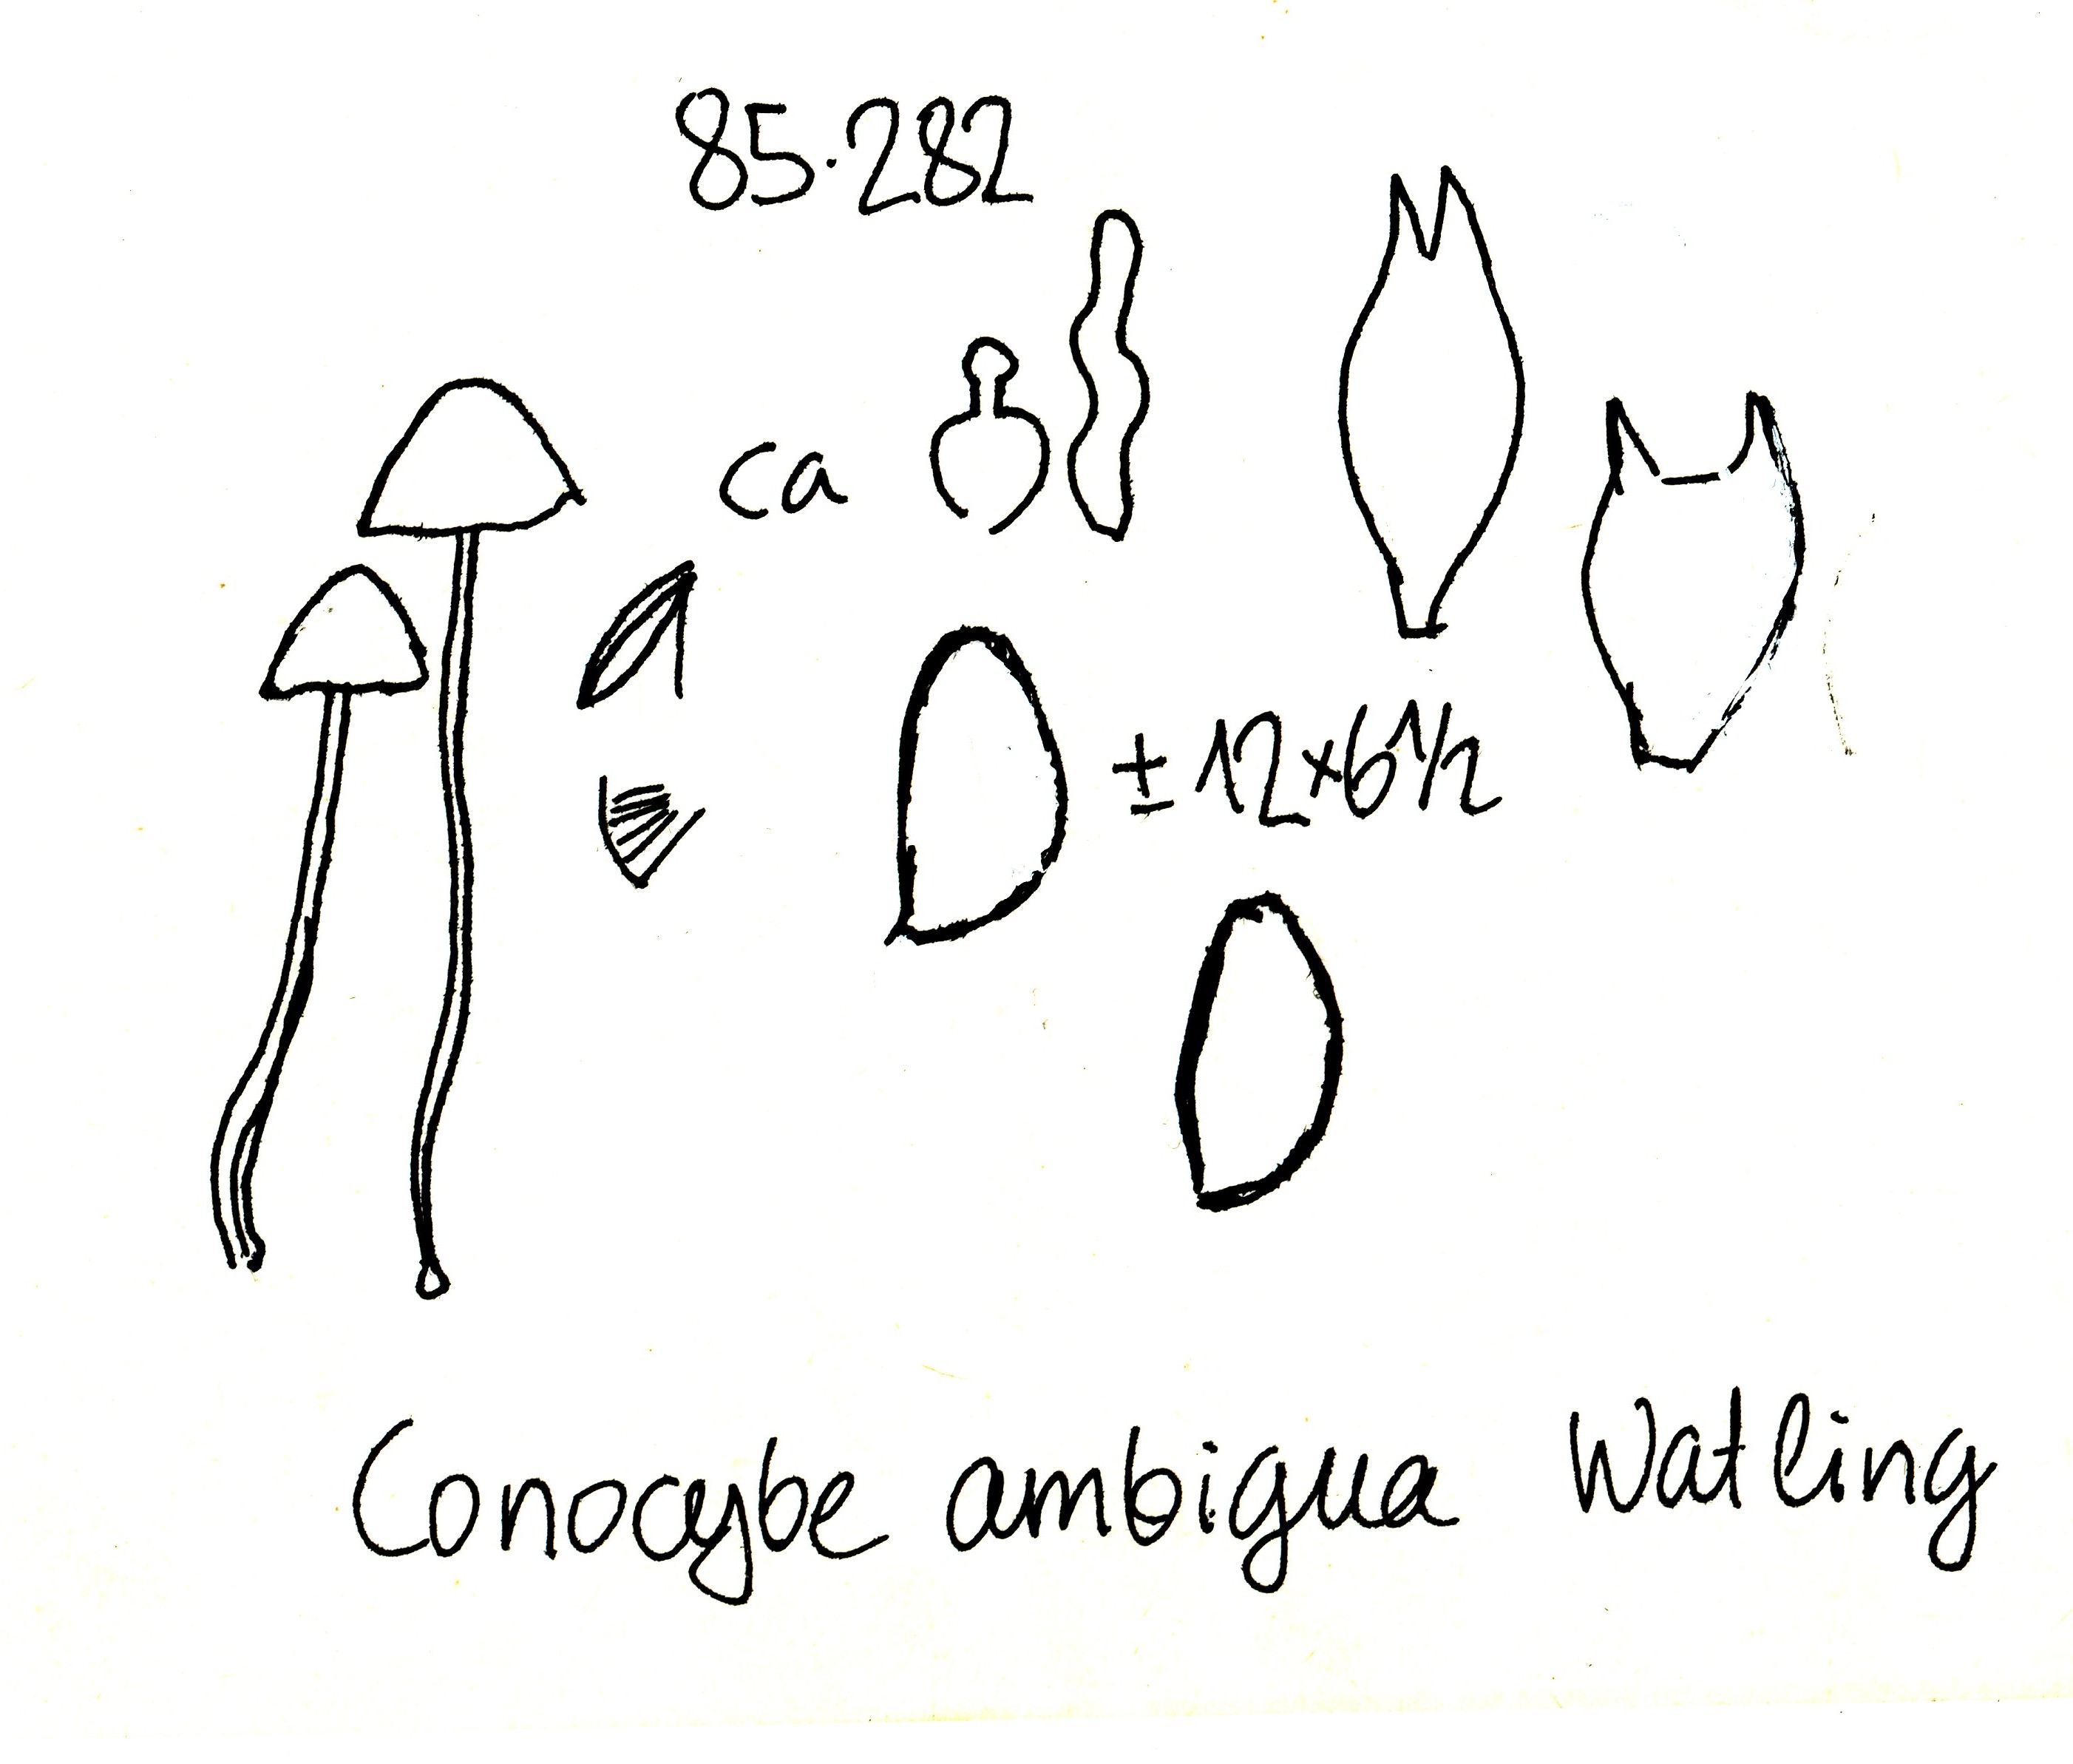 85.282
ca
± 12×6 1/2
Conocybe ambigua Watling